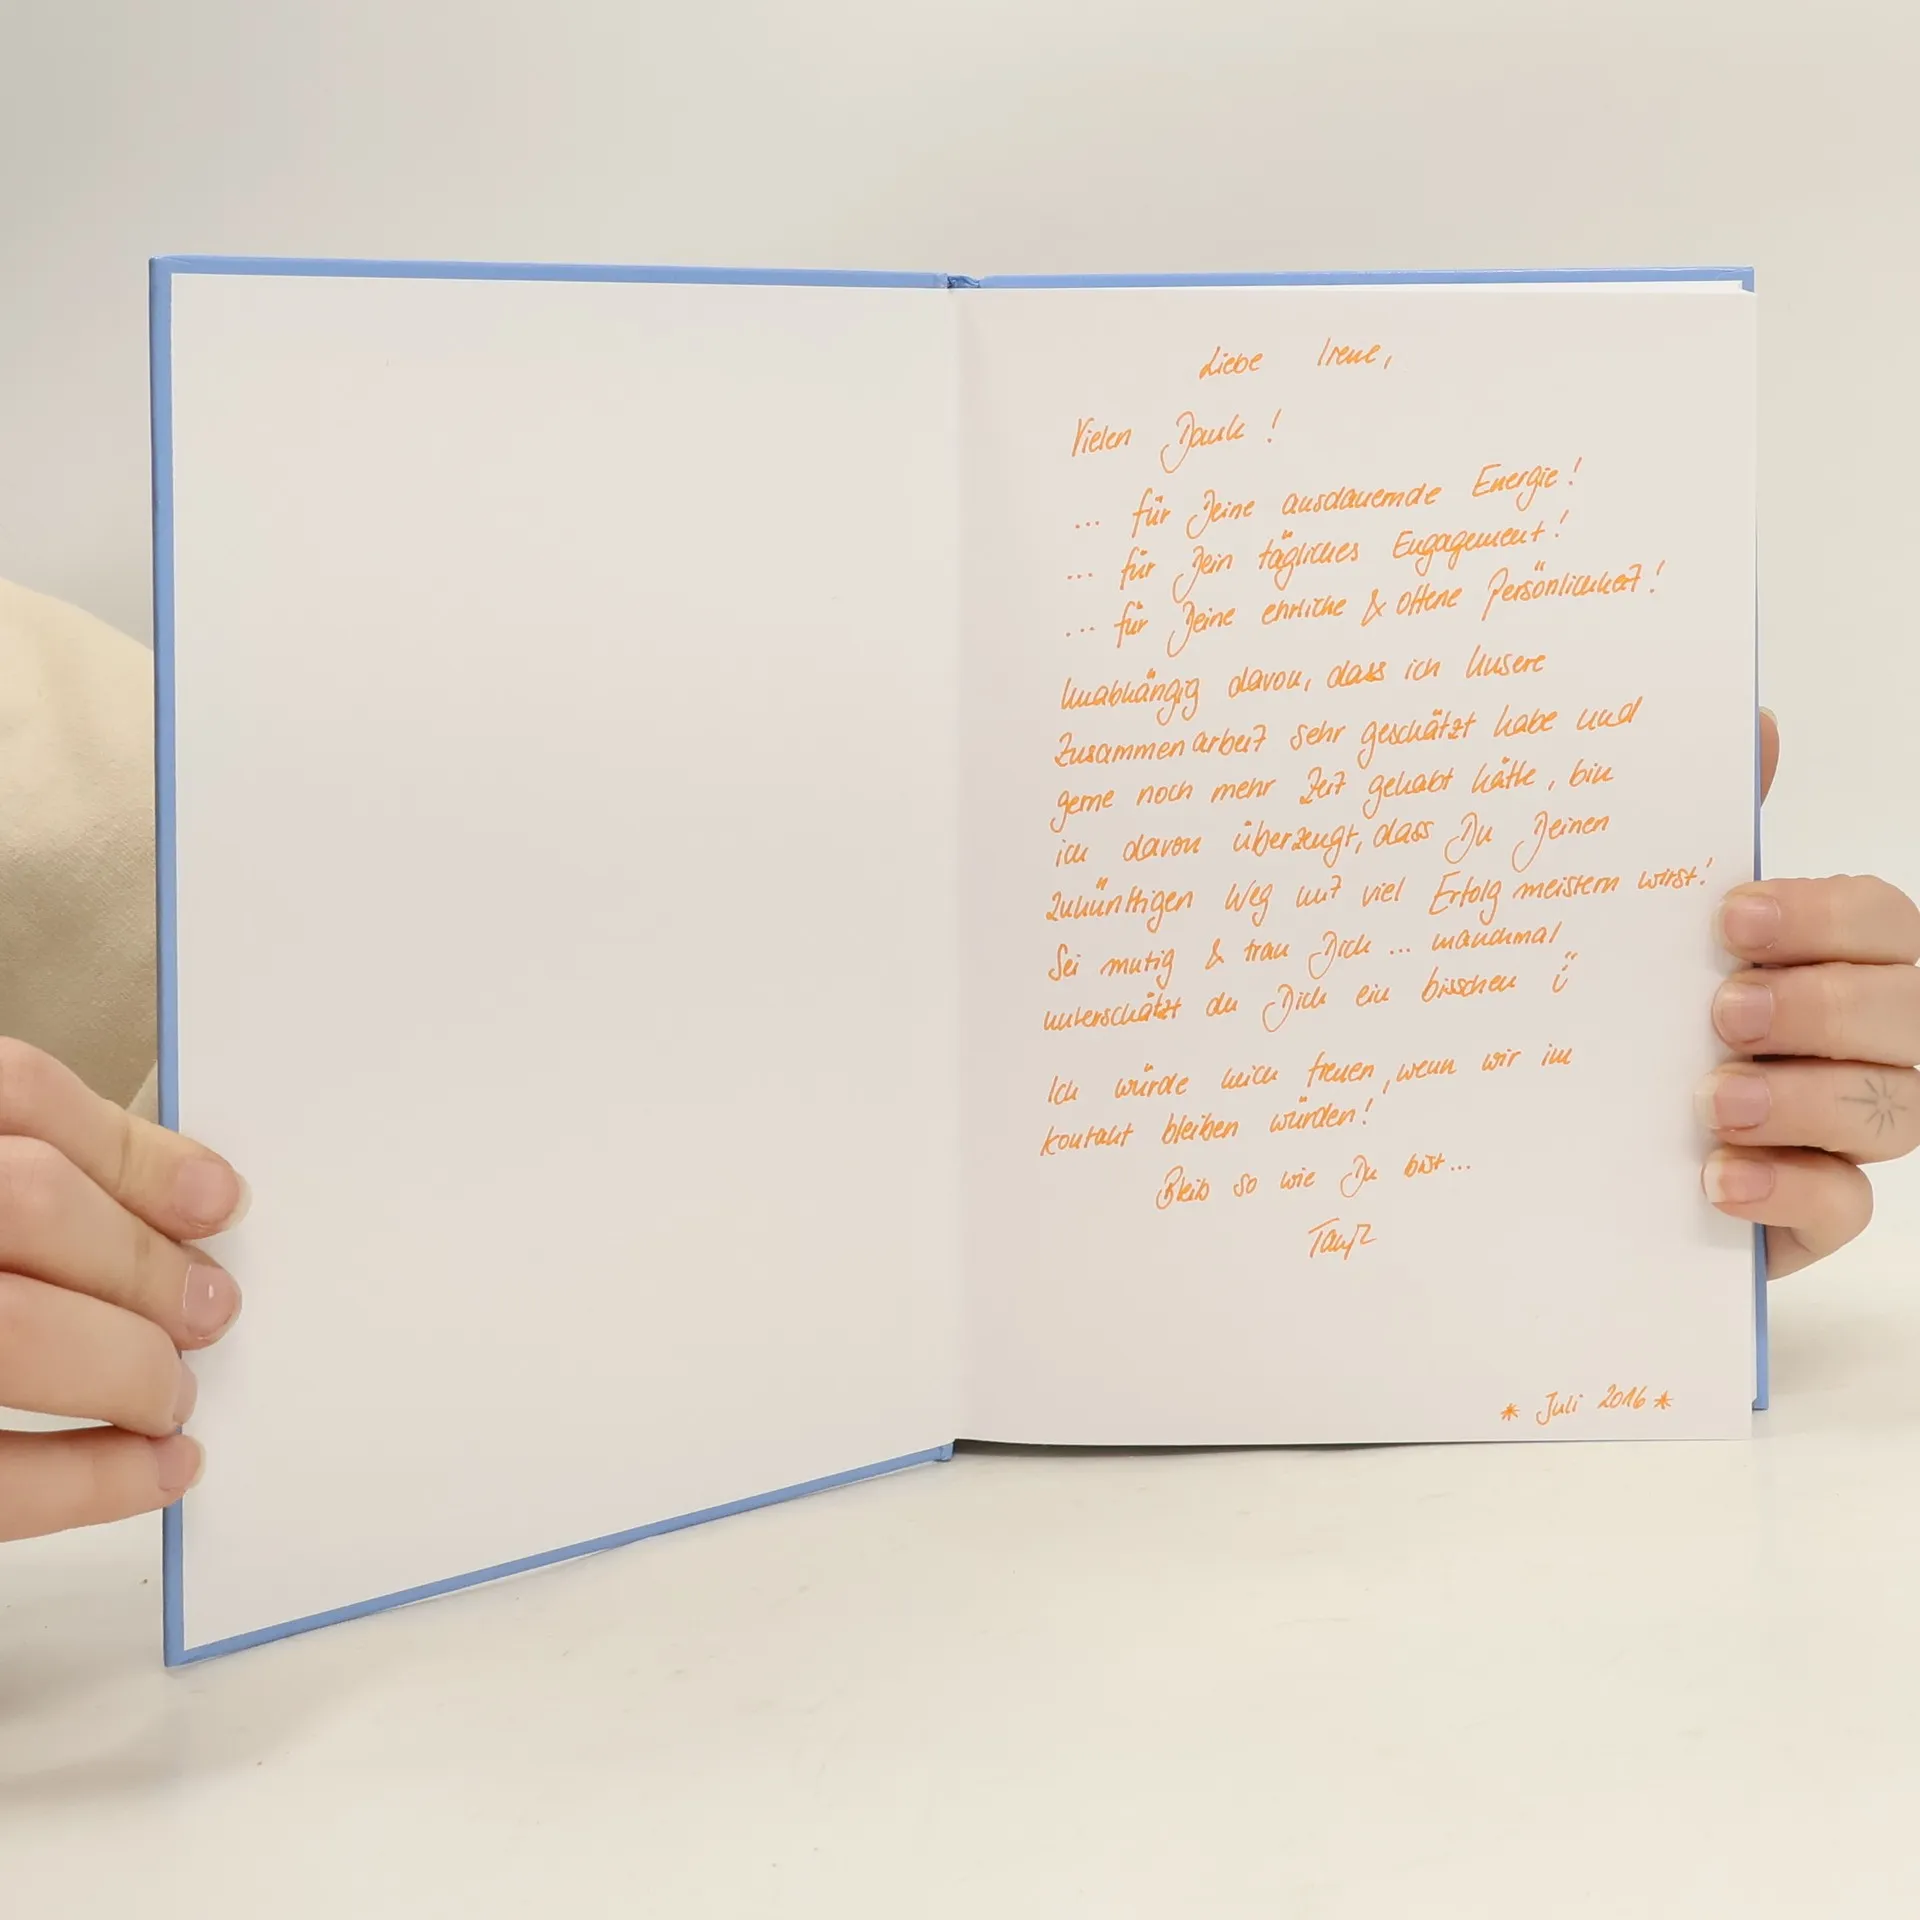 Liebe Irene,
Vielen Dank!
... für Deine ausdauernde Energie!
... für Dein tägliches Engagement!
... für Deine ehrliche & offene Persönlichkeit!
Unabhängig davon, dass ich Unsere
Zusammenarbeit sehr geschätzt habe und
gerne noch mehr Zeit gehabt hätte, bin
ich davon überzeugt, dass Du Deinen
zukünftigen Weg mit viel Erfolg meistern wirst!
Sei mutig & trau Dich ... manchmal
unterschätzt du Dich ein bisschen
Ich würde mich freuen, wenn wir im
Kontakt bleiben würden!
Bleib so wie Du bist...
* Juli 2016 *